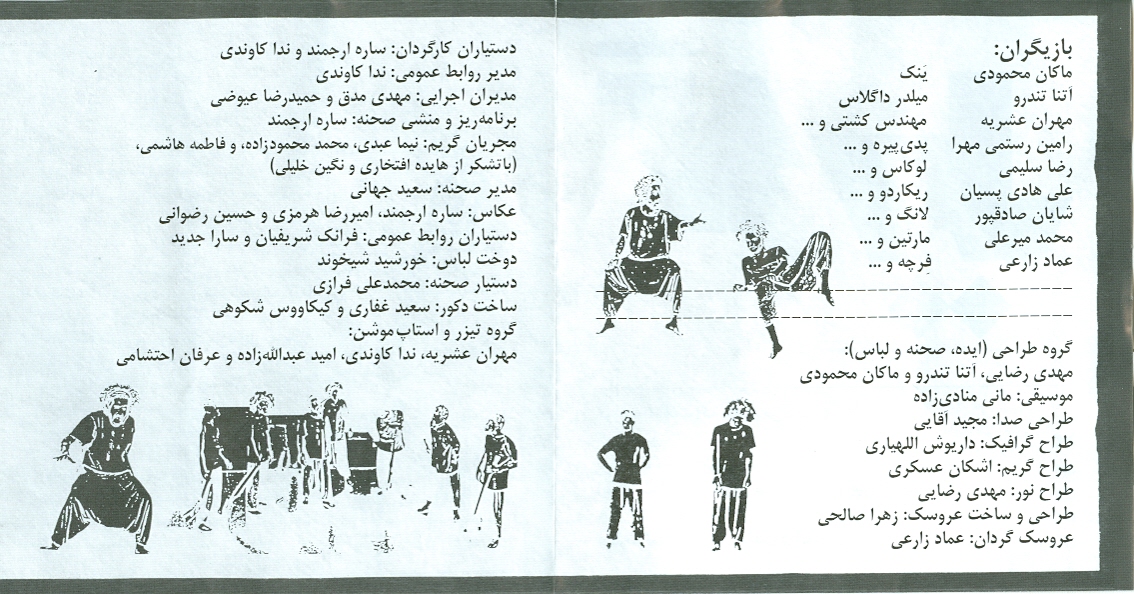 بازیگران:
ماکان محمودی یَنک
آتنا تندرو میلدر داگلاس
مهران عشریه مهندس کشتی و ...
رامین رستمی مهرا پدی‌پیره و ...
رضا سلیمی لوکاس و ...
علی هادی پسیان ریکاردو و ...
شایان صادقپور لانگ و ...
محمد میرعلی مارتین و ...
عماد زارعی فِرچه و ...
گروه طراحی (ایده، صحنه و لباس):
مهدی رضایی، آتنا تندرو و ماکان محمودی
موسیقی: مانی منادی‌زاده
طراحی صدا: مجید آقایی
طراح گرافیک: داریوش اللهیاری
طراح گریم: اشکان عسکری
طراح نور: مهدی رضایی
طراحی و ساخت عروسک: زهرا صالحی
عروسک گردان: عماد زارعی
دستیاران کارگردان: ساره ارجمند و ندا کاوندی
مدیر روابط عمومی: ندا کاوندی
مدیران اجرایی: مهدی مدق و حمیدرضا عیوضی
برنامه‌ریز و منشی صحنه: ساره ارجمند
مجریان گریم: نیما عبدی، محمد محمودزاده، و فاطمه هاشمی،
(باتشکر از هایده افتخاری و نگین خلیلی)
مدیر صحنه: سعید جهانی
عکاس: ساره ارجمند، امیررضا هرمزی و حسین رضوانی
دستیاران روابط عمومی: فرانک شریفیان و سارا جدید
دوخت لباس: خورشید شیخوند
دستیار صحنه: محمدعلی فرازی
ساخت دکور: سعید غفاری و کیکاووس شکوهی
گروه تیزر و استاپ‌موشن:
مهران عشریه، ندا کاوندی، امید عبدالله‌زاده و عرفان احتشامی